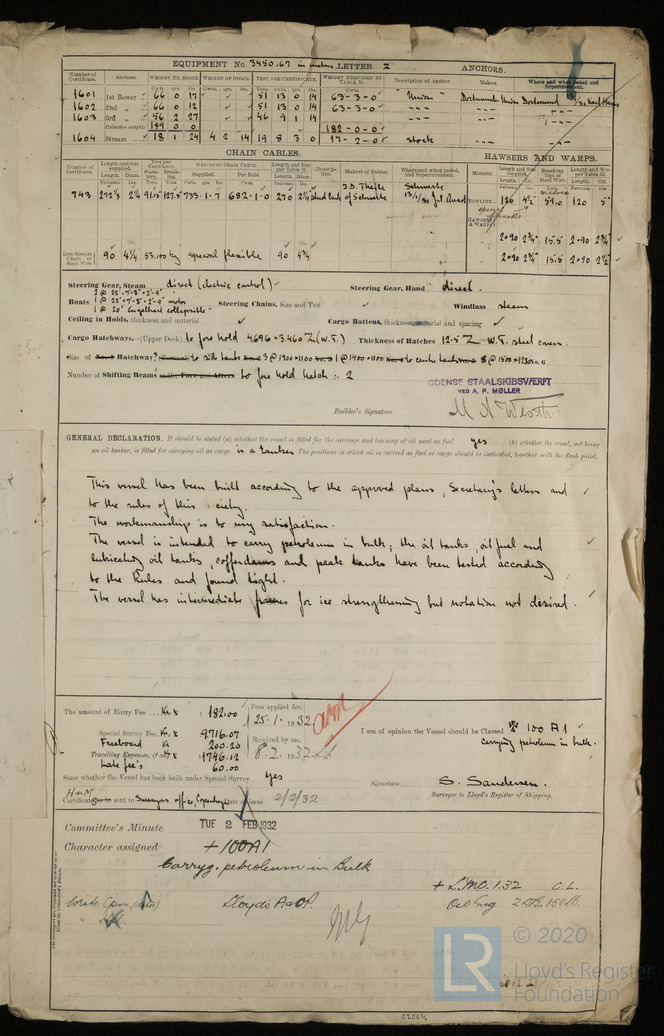 EQUIPMENT No 3450.67 in meters LETTER Z ANCHORS.
Number of Certificate. Anchors. WEIGHT, EX. STOCK WEIGHT OF STOCK. TEST, PER CERTIFICATE. WEIGHT REQUIRED BY TABLE 31. Description of Anchor. Makers. Where and when tested and Superintendent.
1601 1st Bower 66 0 17 51 13 0 14 63-3-0 "Union" Dortmunder Union Dortmund
1602 2nd " 66 0 12 51 13 0 14 63-3-0
1603 3rd " 56 2 27 46 9 1 14
Collective weight 189 0 0 182-0-0
1604 Stream 18 1 24 4 2 14 19 8 3 0 17-2-0 stock
CHAIN CABLES. HAWSERS AND WARPS.
Number of Certificate. Length and size supplied. Test per Certificate. WEIGHT OF CHAIN CABLE. Length and size per Table 31. Description. Makers of Cables. Where and when tested, and Superintendent. Material Length and size supplied. Breaking Test of Steel Wire. Length and size per Table 31.
Length. Diam. Statutory. Breaking. Supplied. Per Rule. Length. Diam. Length. Cir. Length. Cir.
743 272½ 2¼ 91.5 127.5 733-1-7 682-1-0 270 2¼ stud link J.D. Theile of Schwerte Schwerte TOWLINE 126 4½ 59.0 120 5"
HAWSERS & WARPS
2×90 2¾" 15.5 2×90 2¾"
2×90 2¾" 15.5 2×90 2½"
Iron Stream Chain or Steel Wire 90 4¼ 53.100 kg special flexible 90 4¾
Steering Gear, Steam direct (electric control) Steering Gear, Hand direct.
Boats 2 @ 22'×7'-3"×2'-9" 1 @ 22'×7'-3"×2'-9" motor 1 @ 20' Engelhardt collapsible Steering Chains, Size and Test Windlass steam
Ceiling in Holds, thickness and material Cargo Battens, thickness, material and spacing
Cargo Hatchways. (Upper Deck) to fore hold 4696×3460 (W.T.) Thickness of Hatches 12.5 W.T. steel covers.
Size of Hatchway? to side tanks 3 @ 1900×1100 1 @ 1400×1100 to centre tanks 8 @ 1500×1230 No. 6
Number of Shifting Beams to fore hold hatch :- 2
ODENSE STAALSKIBSVÆRFT
VED A. P. MØLLER
Builder's Signature
GENERAL DECLARATION. It should be stated (a) whether the vessel is fitted for the carriage and burning of oil used as fuel yes (b) whether the vessel, not being
an oil tanker, is fitted for carrying oil as cargo is a tanker The positions in which oil is carried as fuel or cargo should be indicated, together with the flash point.
This vessel has been built according to the approved plans, Secretary's letters and
to the rules of this society.
The workmanship is to my satisfaction.
The vessel is intended to carry petroleum in bulk; the oil tanks, oil fuel and
lubricating oil tanks, cofferdams and peak tanks have been tested according
to the Rules and found tight.
The vessel has intermediate frames for ice strengthening but notation not desired.
The amount of Entry Fee Kr 182.00 Fees applied for, 25-1-1932
Special Survey Fee Kr 9716.07
Freeboard Kr 200.20 Received by me, 8-2-1932
Travelling Expenses, if any 1746.12
Late fee's 60.00
I am of opinion the Vessel should be Classed ✠ 100 A1
carrying petroleum in bulk.
State whether the Vessel has been built under Special Survey yes Signature S. Sandersen.
Surveyor to Lloyd's Register of Shipping.
Certificate sent to Surveyors office, Copenhagen Date of issue 2/2/32
Committee's Minute TUE 2 FEB 1932
Character assigned + 100A1
Carryg. petroleum in Bulk
+ LMC. 1.32 C.L.
Lloyd's A&CP. Oil Eng
© 2020
LR Lloyd's Register
Foundation